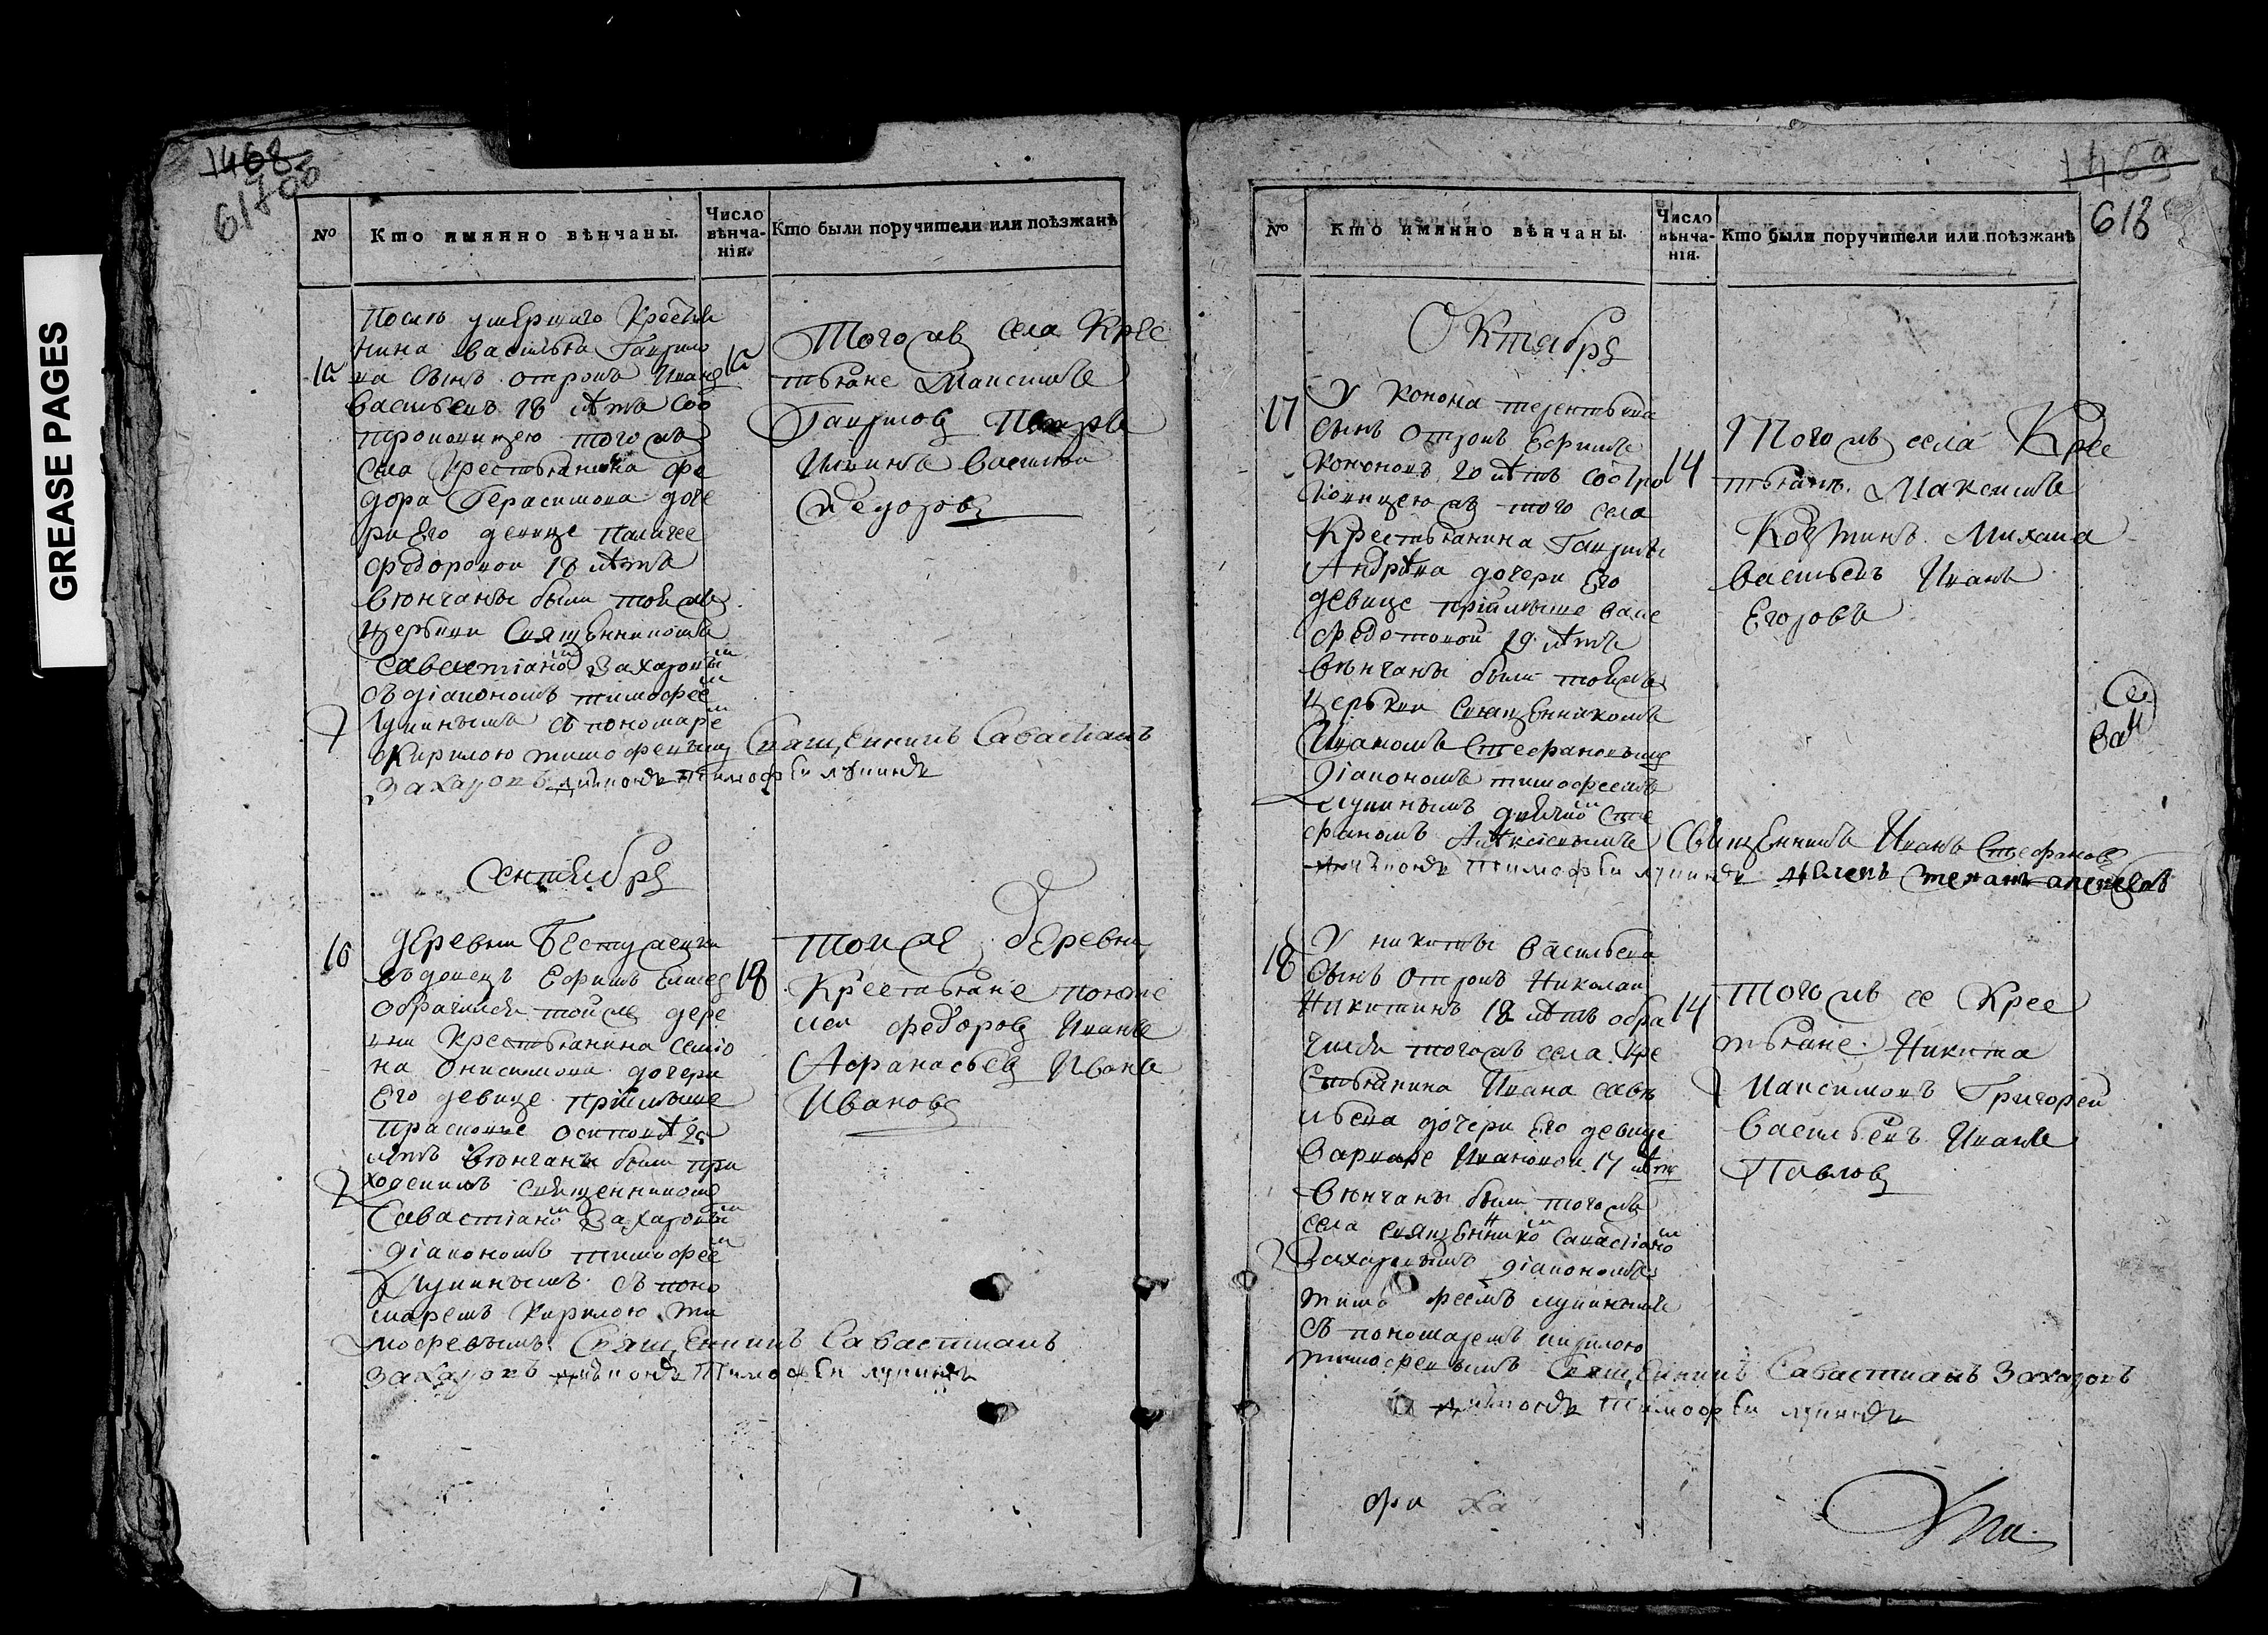 GREASE PAGES
1468
617 об
№
Кто имянно вѣнчаны.
Число вѣнча-нія.
Кто были поручители или поѣзжанѣ
После умершаго Крестья
нина василья Гаврило
ва сынъ отрокъ Иванъ
васильевъ 18 лѣтъ соо
трокавицею того жъ
села крестьянина фе
дора Герасимова доче
ри Его девице
федоровой 18 лѣтъ
венчаны были тойжъ
церькви Священникомъ
савастіаномъ Захаровымъ
съ діакономъ тимофеемъ
Лукинымъ съ пономаремъ
Кирилою тимофеевымъ Священникъ Савастианъ
Захаровъ диаконъ Тимофей лукинъ
Того жъ села Крес
тьяне Максимъ
Гаврилов Петръ
Василей
Федоров
Сентябрь
16
деревни Бестужевки
вдовецъ Ефимъ
обрачился тойже дере
вни крестьянина
на Онисимова дочери
Его девице приимыше
прасковье осиповой
лѣтъ венчаны были при
ходскимъ священникомъ
Савастіаномъ Захаровымъ
діакономъ тимофеемъ
Лукинымъ съ поно
маремъ Кирилою ти
мофеевымъ Священникъ Савастианъ
Захаровъ диаконъ Тимофей лукинъ
18
той же деревни
Крестьяне
федоров Иванъ
Афанасьев Иванъ
Иванов
1469
618
№
Кто имянно вѣнчаны.
Число вѣнча-нія.
Кто были поручители или поѣзжанѣ
Октябрь
17
У Конона терентьева
сынъ отрокъ Ефимъ
Кононовъ 20 лѣтъ соотро
ковицею жъ того села
Крестьянина Гаврилы
Андрѣева дочери Его
девице приимыше васе
федотовой 19 лѣтъ
вѣнчаны были тойжъ
церькви священникомъ
Иваномъ Стефановымъ
діакономъ тимофеемъ
лукинымъ дьячкомъ Сте
фаномъ Алексѣевымъ Священникъ Иванъ Стефановъ
диаконъ Тимофей лукинъ дьячекъ степанъ алексеевъ
14
Того жъ села Крес
тьянъ Максимъ
Михаила
васильевъ Иванъ
Егоровъ
18
У никиты васильева
сынъ отрокъ Николай
Никитинъ 18 лѣтъ обра
чился тогожъ села кре
стьянина Ивана савѣ
льева дочери Его девице
варваре Ивановой 17 лѣтъ
вѣнчаны были тогожъ
села священникомъ савастіаномъ
Захаровымъ діакономъ
тимофеемъ лукинымъ
съ пономаремъ кирилою
тимофеевымъ Священникъ Савастианъ Захаровъ
диаконъ Тимофей лукинъ
14
Того жъ се Крес
тьяне Никита
Максимовъ Григорей
васильевъ Иванъ
Павлов